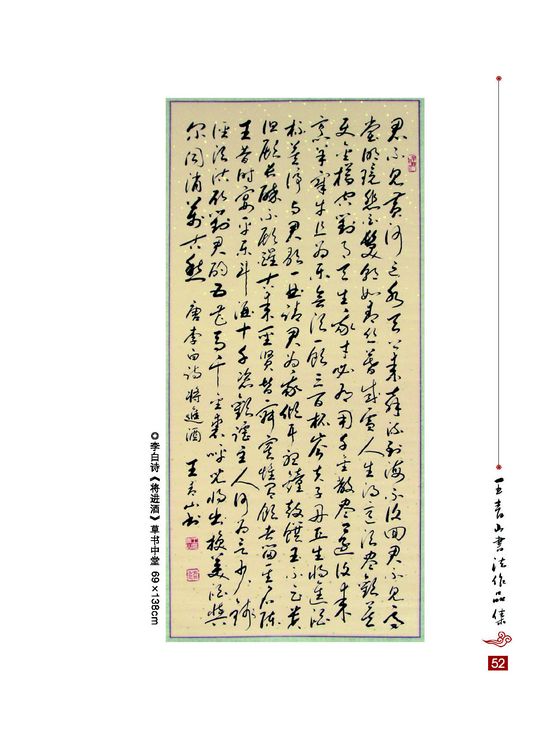 君不見黄河之水天上来奔流到海不復回君不見高
堂明鏡悲白髮朝如青丝暮成雪人生得意須尽歡莫
使金樽空對月天生我材必有用千金散尽還復来
烹羊宰牛且为乐会須一飲三百杯岑夫子丹丘生将進酒
杯莫停与君歌一曲請君为我傾耳聽鐘鼓饌玉不足贵
但願长醉不願醒古来聖賢皆寂寞惟有飲者留其名陈
王昔时宴平乐斗酒十千恣歡謔主人何为言少钱
徑須沽取對君酌五花马千金裘呼兒将出换美酒與
尔同消萬古愁 唐李白诗将進酒 王青山书
◎李白诗《将进酒》草书中堂 69×138cm
王青山書法作品集
52